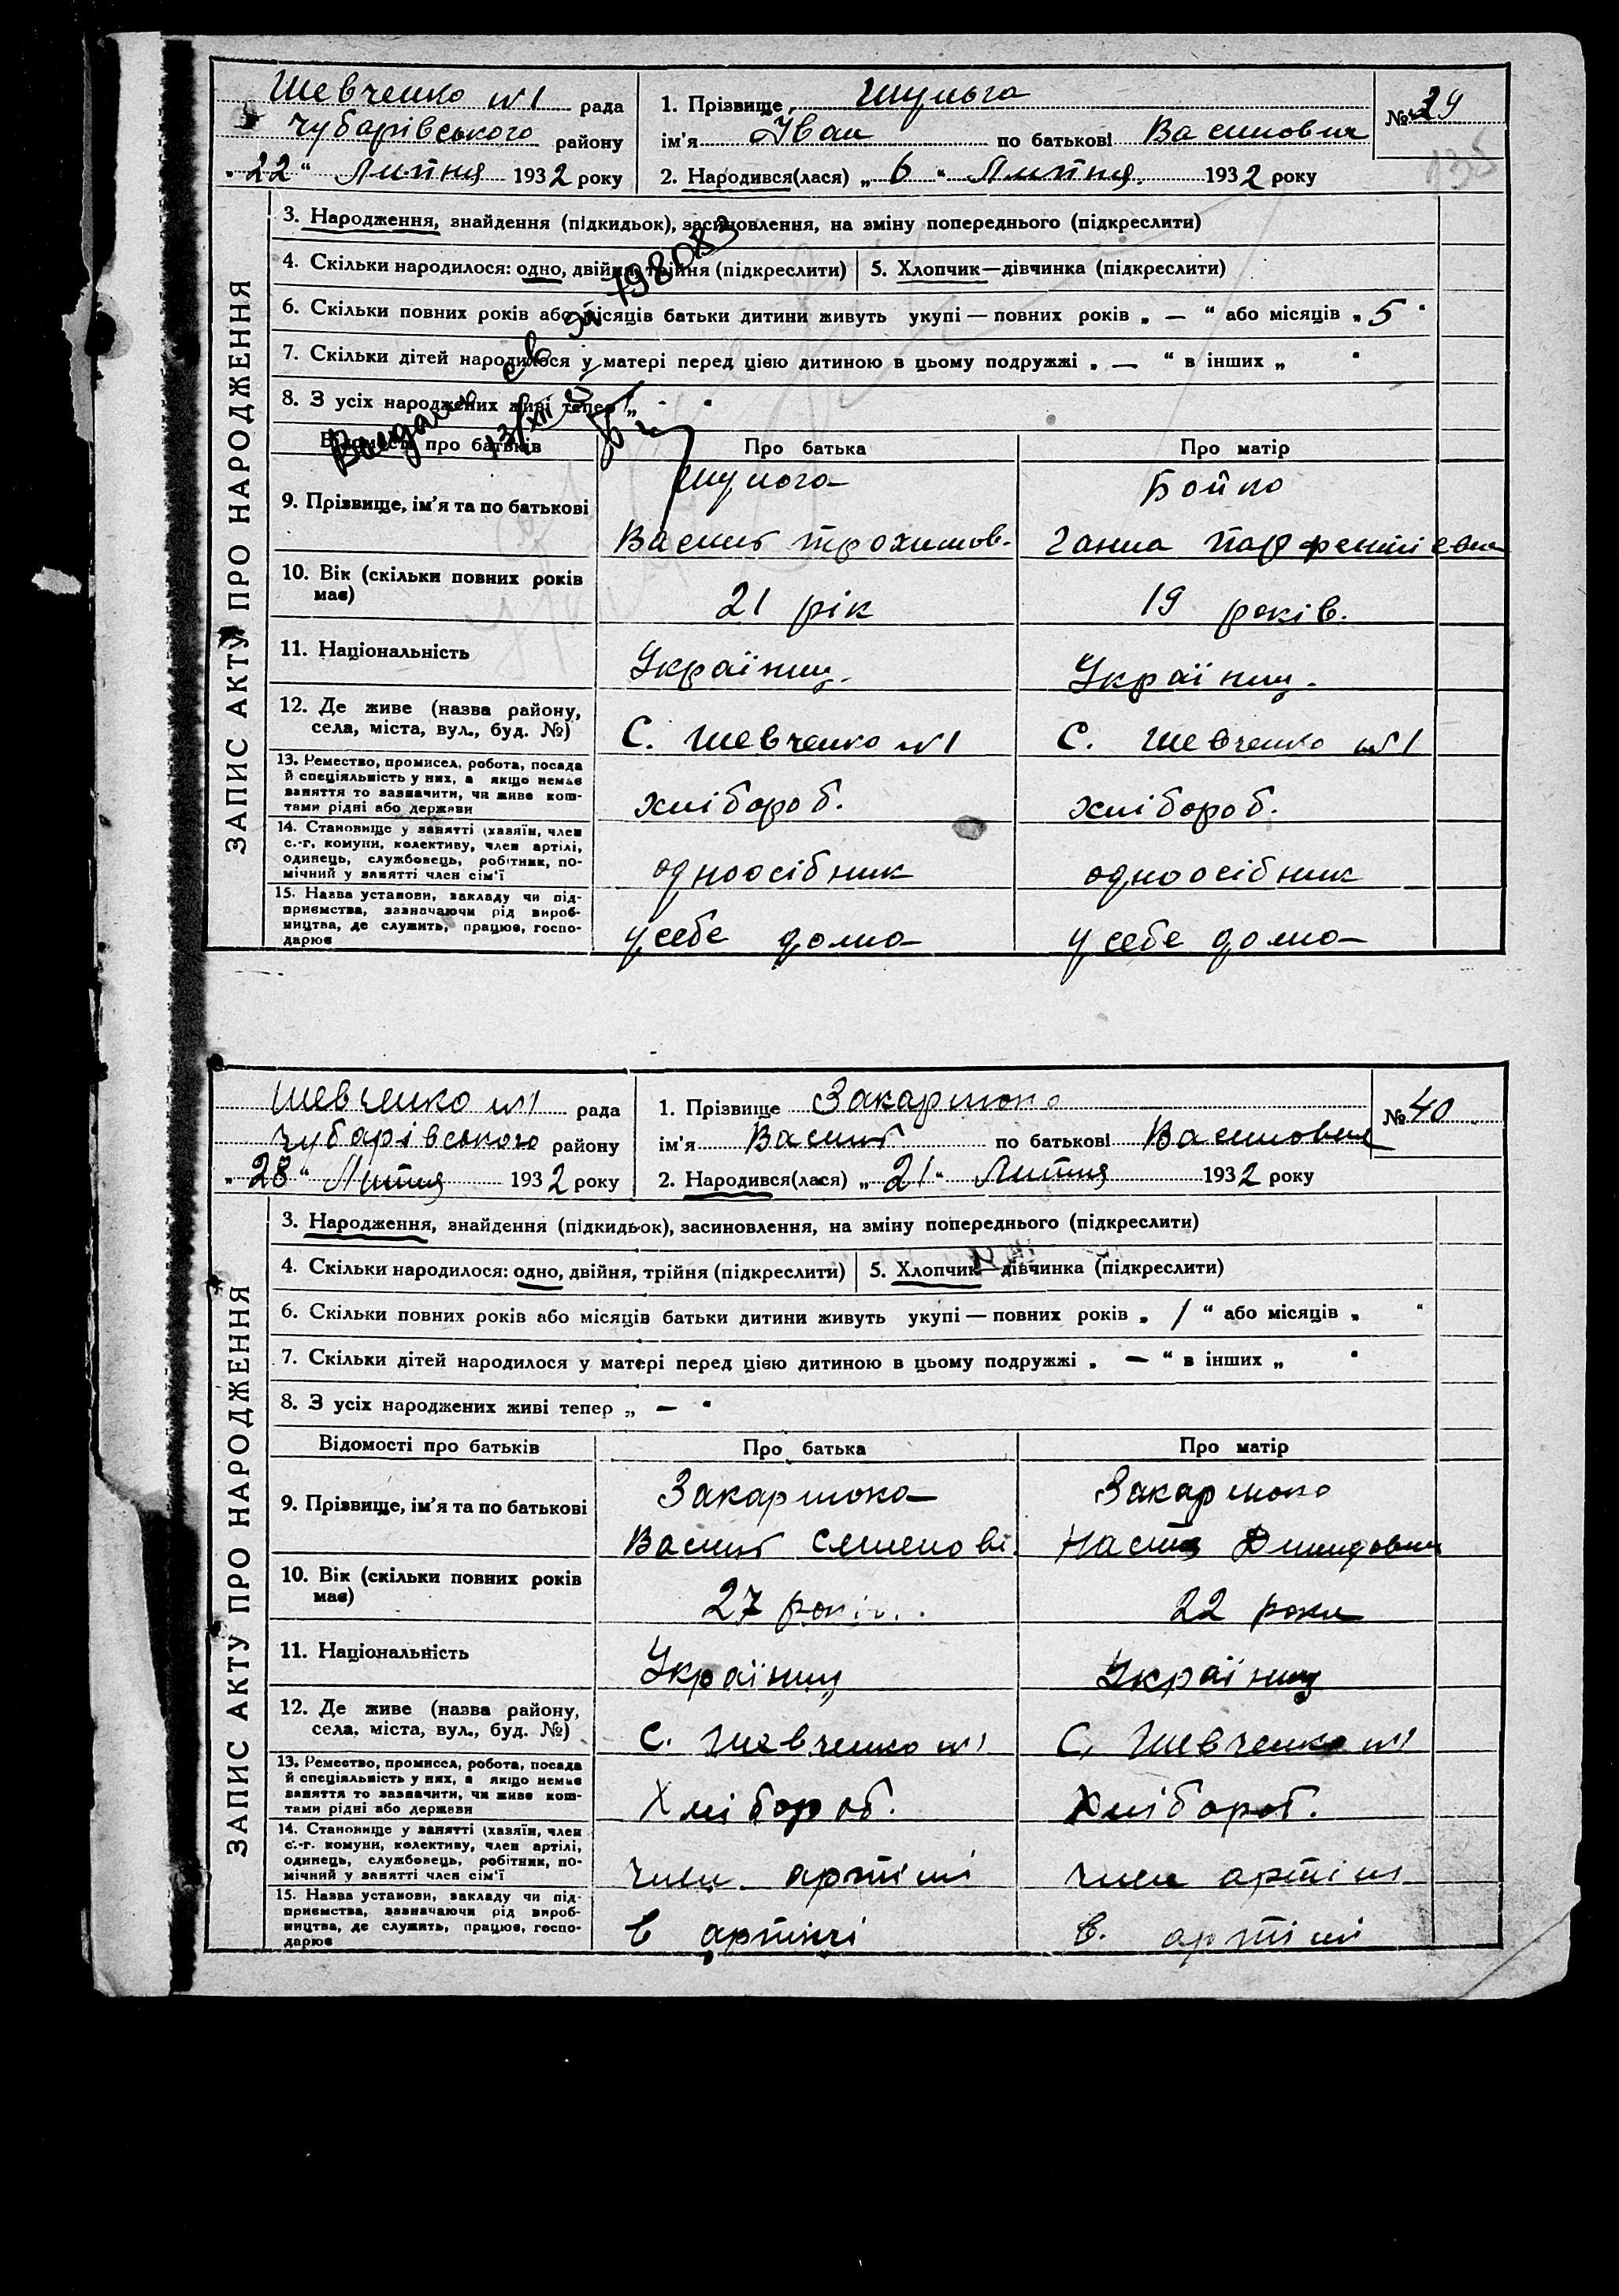 Шевченко №1 рада
Чубарівського району
„22“ Липня 1932 року
1. Прізвище Шульга
ім'я Іван по батькові Василович
2. Народився(лася) „6“ Липня 1932 року
№ 39
135
ЗАПИС АКТУ ПРО НАРОДЖЕННЯ
3. Народження, знайдення (підкидьок), засиновлення, на зміну попереднього (підкреслити)
4. Скільки народилося: одно, двійня, трійня (підкреслити) 5. Хлопчик—дівчинка (підкреслити)
6. Скільки повних років або місяців батьки дитини живуть укупі — повних років „ — “ або місяців „5“
7. Скільки дітей народилося у матері перед цією дитиною в цьому подружжі „ — “ в інших „ “
8. З усіх народжених живі тепер „ - “
Відомості про батьків Про батька Про матір
9. Прізвище, ім'я та по батькові
Шульга Бойко
Василь Трохимов. Ганна Парфентієвна
10. Вік (скільки повних років має)
21 рік 19 років.
11. Національність
Українц. Українц.
12. Де живе (назва району,
села, міста, вул., буд. №)
С. Шевченко №1 С. Шевченко №1
13. Ремество, промисел, робота, посада
й спеціяльність у них, а якщо немає
заняття то зазначити, чи живе кош-
тами рідні або держави
хлібороб. хлібороб.
14. Становище у занятті (хазяїн, член
с.-г. комуни, колективу, член артілі,
одинець, службовець, робітник, по-
мічний у занятті член сім'ї
одноосібник одноосібник
15. Назва установи, закладу чи під-
приємства, зазначаючи рід вироб-
ництва, де служить, працює, госпо-
дарює
у себе дома у себе дома
Шевченко №1 рада
Чубарівського району
„28“ Липня 1932 року
1. Прізвище Закарлюка
ім'я Василь по батькові Василович
2. Народився(лася) „21“ Липня 1932 року
№ 40
ЗАПИС АКТУ ПРО НАРОДЖЕННЯ
3. Народження, знайдення (підкидьок), засиновлення, на зміну попереднього (підкреслити)
4. Скільки народилося: одно, двійня, трійня (підкреслити) 5. Хлопчик—дівчинка (підкреслити)
6. Скільки повних років або місяців батьки дитини живуть укупі — повних років „ 1 “ або місяців „ “
7. Скільки дітей народилося у матері перед цією дитиною в цьому подружжі „ — “ в інших „ “
8. З усіх народжених живі тепер „ — “
Відомості про батьків Про батька Про матір
9. Прізвище, ім'я та по батькові
Закарлюка Закарлюка
Василь Семенові. Настя Демидовна
10. Вік (скільки повних років має)
27 років. 22 роки
11. Національність
Українц Українц
12. Де живе (назва району,
села, міста, вул., буд. №)
С. Шевченко №1 С. Шевченко №1
13. Ремество, промисел, робота, посада
й спеціяльність у них, а якщо немає
заняття то зазначити, чи живе кош-
тами рідні або держави
Хлібороб. Хлібороб.
14. Становище у занятті (хазяїн, член
с.-г. комуни, колективу, член артілі,
одинець, службовець, робітник, по-
мічний у занятті член сім'ї
член артілі член артілі
15. Назва установи, закладу чи під-
приємства, зазначаючи рід вироб-
ництва, де служить, працює, госпо-
дарює
в артілі в. артілі